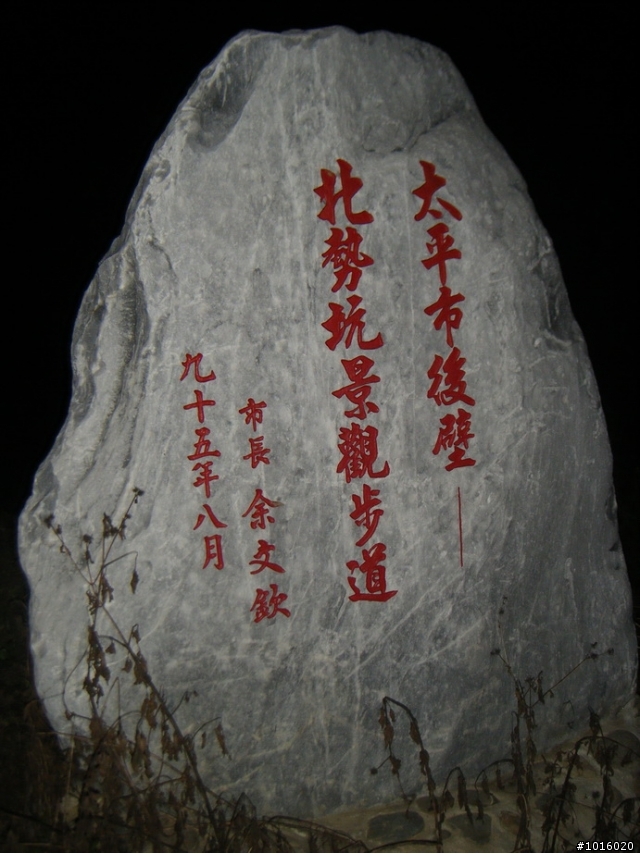 太平市後壁—
北勢坑景觀步道
市長 余文欽
九十五年八月
#1016020